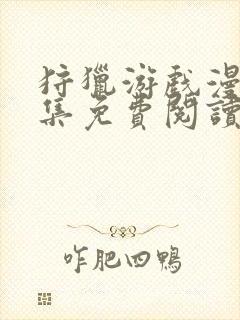 狩獵游戲漫
集免費閱讀
咋肥四鴨